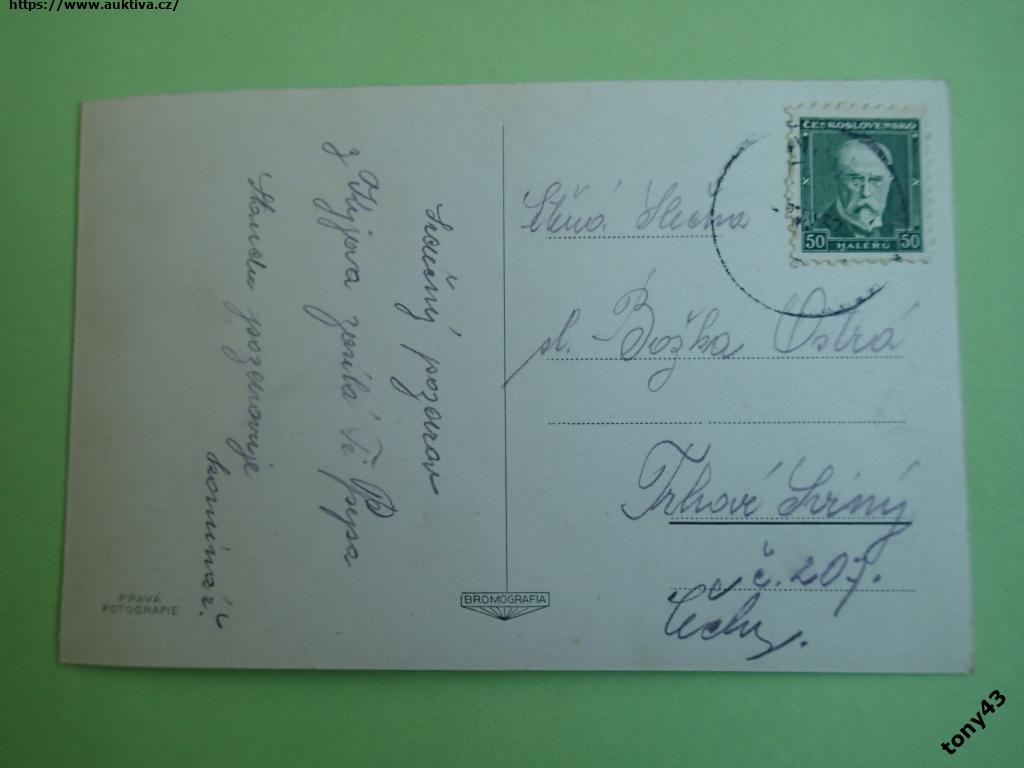 https://www.auktiva.cz/
Srdečný pozdrav
z Kyjova zasílá Ti Pepa
Standu pozdravuje
kominář.
PRAVÁ
FOTOGRAFIE
BROMOGRAFIA
ČESKOSLOVENSKO
50 HALÉŘŮ 50
Slečna
sl. Božka Ostrá
Trhové Sviny
č. 207.
Čechy.
tony43